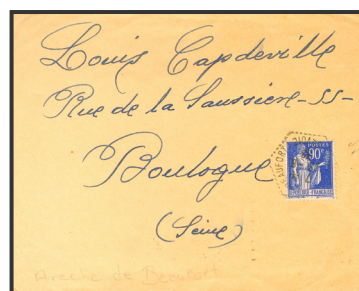 Louis Capdeville
Rue de la Saussiere - 55 -
Boulogne
(Seine)
POSTES
90c
Areche de Beaufort